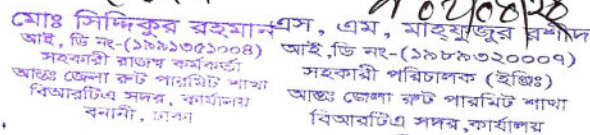 মোঃ সিদ্দিকুর রহমান
আই, ডি নং-(১৯৯১৩৫১০০৪)
সহকারী রাজস্ব কর্মকর্তা
আন্তঃ জেলা রুট পারমিট শাখা
বিআরটিএ সদর, কার্যালয়
বনানী, ঢাকা
এস, এম, মাহফুজুর রশীদ
আই,ডি নং-(১৯৮৯৩২০০০৭)
সহকারী পরিচালক (ইঞ্জিঃ)
আন্তঃ জেলা রুট পারমিট শাখা
বিআরটিএ সদর,কার্যালয়